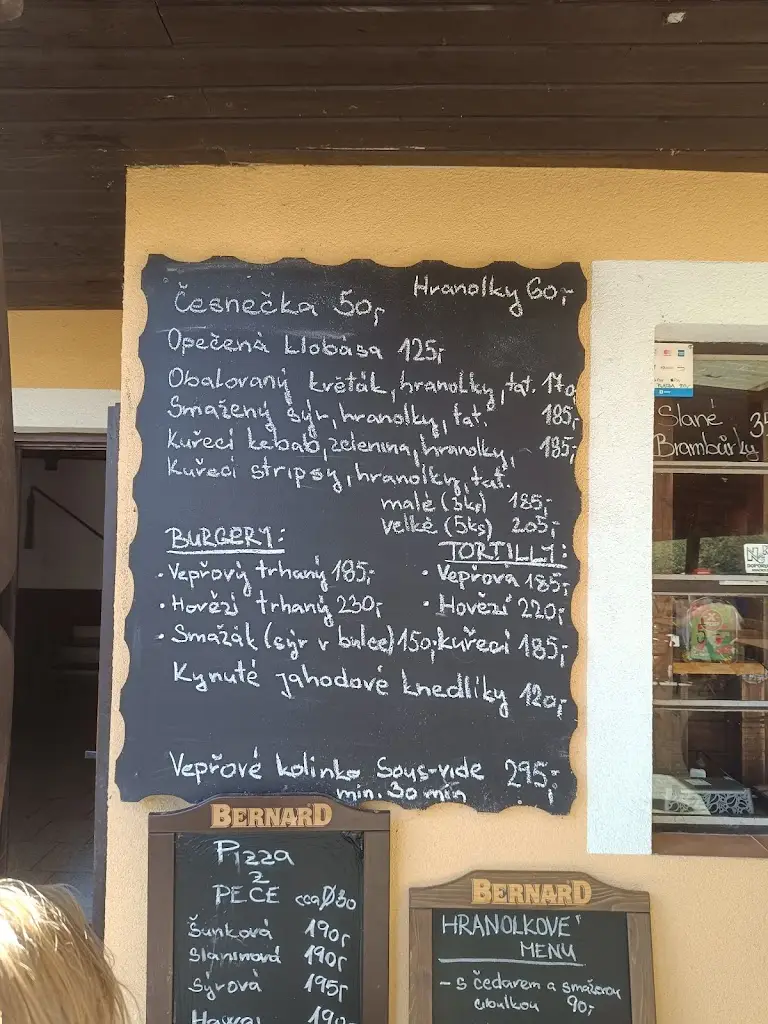 Česnečka 50,-
Hranolky 60,-
Opečená klobása 125,-
Obalovaný květák, hranolky, tat. 170,
Smažený sýr, hranolky, tat. 185,-
Kuřecí kebab, zelenina, hranolky, 185,-
Kuřecí stripsy, hranolky, tat.
malé (3ks) 185,-
velké (5ks) 205,-
BURGERY:
• Vepřový trhaný 185,-
• Hovězí trhaný 230,-
• Smažák (sýr v bulce) 150,-
TORTILLY:
• Vepřová 185,-
• Hovězí 220,-
kuřecí 185,-
Kynuté jahodové knedlíky 120,-
Vepřové kolínko Sous-vide 295,-
min. 30 min
BERNARD
Pizza
z
PECE cca Ø30
Šunková 190,-
Slaninová 190,-
Sýrová 195,-
Hawai 190,-
BERNARD
HRANOLKOVÉ
MENU
- s čedarem a smaženou
cibulkou 90,-
Slané 35
Brambůrky